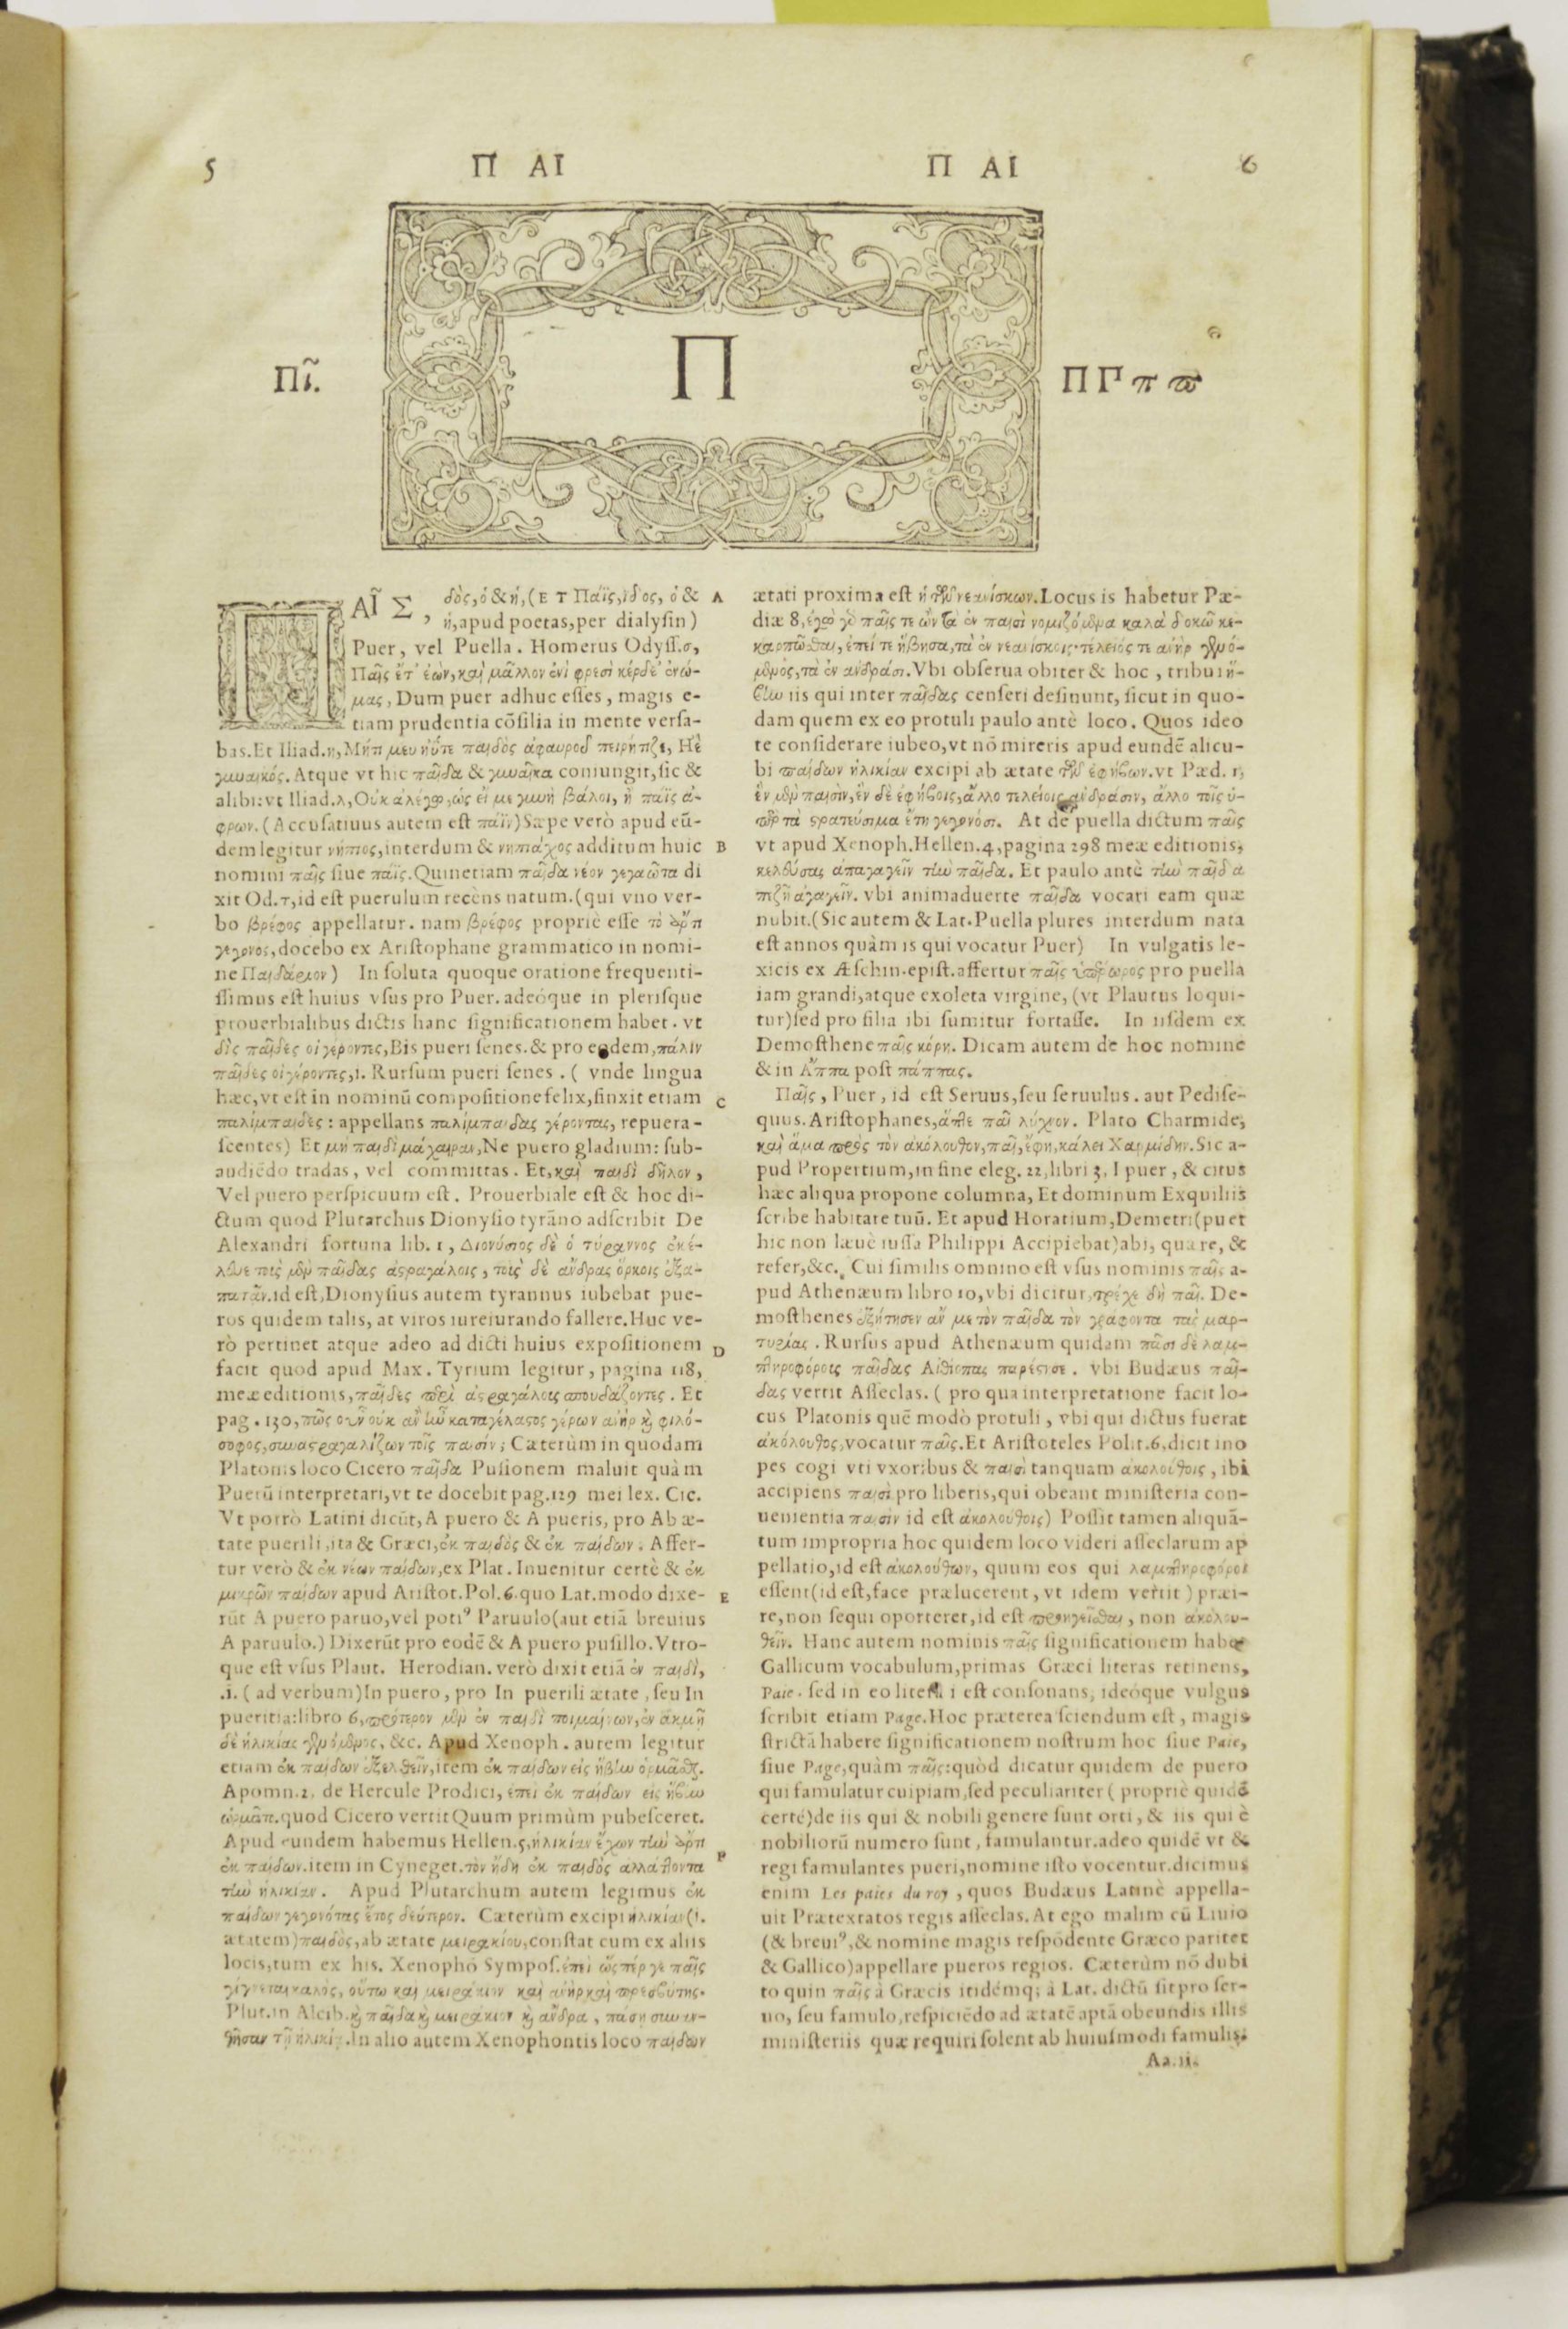 5 Π ΑΙ Π ΑΙ 6
Πῖ. Π Π Γ π ϖ
ΠΑΙ͂Σ, δὸς, ὁ & ἡ, (ET Πάϊς, ϊδος, ὁ &
ἡ, apud poetas, per dialysin)
Puer, vel Puella. Homerus Odyss.σ,
Παῖς ἔτ' ἐὼν, καὶ μᾶλλον ἐνὶ φρεσὶ κέρδε' ἐνώ-
μας, Dum puer adhuc esses, magis e-
tiam prudentia cōsilia in mente versa-
bas. Et Iliad.η, Μήτι μευ ἠΰτε παιδὸς ἀφαυροῦ πειρήτιζε, Ηὲ
γυναικός. Atque vt hic παῖδα & γυναῖκα coniungit, sic &
alibi: vt Iliad.λ, Οὐκ ἀλέγω, ὡς εἴ με γυνὴ βάλοι, ἢ πάϊς ἄ-
φρων. (Accusatiuus autem est πάϊν) Sæpe verò apud eū-
dem legitur νήπιος, interdum & νηπίαχος additum huic
nomini παῖς siue πάϊς. Quinetiam παῖδα νέον γεγαῶτα di
xit Od.τ, id est puerulum recèns natum. (qui vno ver-
bo βρέφος appellatur. nam βρέφος propriè esse τὸ ἄρτι
γεγονος, docebo ex Aristophane grammatico in nomi-
ne Παιδάριον) In soluta quoque oratione frequenti-
ssimus est huius vsus pro Puer. adeóque in plerisque
prouerbialibus dictis hanc significationem habet. vt
δὶς παῖδες οἱ γέροντες, Bis pueri senes. & pro eodem, πάλιν
παῖδες οἱ γέροντες, i. Rursum pueri senes. ( vnde lingua
hæc, vt est in nominū compositione felix, finxit etiam
παλίμπαιδες: appellans παλίμπαιδας γέροντας, repuera-
scentes) Et μὴ παιδὶ μάχαιραν, Ne puero gladium: sub-
audiēdo tradas, vel committas. Et, καὶ παιδὶ δῆλον,
Vel puero perspicuum est. Prouerbiale est & hoc di-
ctum quod Plutarchus Dionysio tyrāno adscribit De
Alexandri fortuna lib. 1, Διονύσιος δὲ ὁ τύραννος ἐκέ-
λευε τοὺς μὲν παῖδας ἀστραγάλοις, τοὺς δὲ ἄνδρας ὅρκοις ἐξα-
πατᾶν. id est, Dionysius autem tyrannus iubebat pue-
ros quidem talis, at viros iureiurando fallere. Huc ve-
rò pertinet atque adeo ad dicti huius expositionem
facit quod apud Max. Tyrium legitur, pagina 118,
meæ editionis, παῖδες περὶ ἀστραγάλοις σπουδάζοντες. Et
pag. 130, πῶς οὖν οὐκ ἂν ἦν καταγέλαστος γέρων ἀνὴρ καὶ φιλό-
σοφος, συναστραγαλίζων τοῖς παισίν; Cæterùm in quodam
Platonis loco Cicero παῖδα Pusionem maluit quàm
Puerū interpretari, vt te docebit pag.129 mei lex. Cic.
Vt porrò Latini dicūt, A puero & A pueris, pro Ab æ-
tate puerili, ita & Græci, ἐκ παιδὸς & ἐκ παίδων. Affer-
tur verò & ἐκ νέων παίδων, ex Plat. Inuenitur certè & ἐκ
μικρῶν παίδων apud Aristot. Pol.6. quo Lat. modo dixe-
rūt A puero paruo, vel poti⁹ Paruulo (aut etiā breuius
A paruulo.) Dixerūt pro eodē & A puero pusillo. Vtro-
que est vsus Plaut. Herodian. verò dixit etiā ἐν παιδὶ,
.i. ( ad verbum) In puero, pro In puerili ætate, seu In
pueritia: libro 6, πρότερον μὲν ἐν παιδὶ ποιμαίνων, ἐν ἀκμῇ
δὲ ἡλικίας γενόμενος, &c. Apud Xenoph. autem legitur
etiam ἐκ παίδων ἐξελθεῖν, item ἐκ παίδων εἰς ἥβην ὁρμᾶσθαι.
Apomn.2, de Hercule Prodici, ἐπεὶ ἐκ παίδων εἰς ἥβην
ὡρμᾶτο. quod Cicero vertit Quum primùm pubesceret.
Apud eundem habemus Hellen.5, ἡλικίαν ἔχων τὴν ἄρτι
ἐκ παίδων. item in Cyneget. τὸν ἤδη ἐκ παιδὸς ἀλλάττοντα
τὴν ἡλικίαν. Apud Plutarchum autem legimus ἐκ
παίδων γεγονότας ἔτος δεύτερον. Cæterùm excipi ἡλικίαν (i.
ætatem) παιδὸς, ab ætate μειρακίου, constat cum ex aliis
locis, tum ex his. Xenophō Sympos. ἐπεὶ ὥσπέρ γε παῖς
γίγνεται καλὸς, οὕτω καὶ μειράκιον καὶ ἀνὴρ καὶ πρεσβύτης.
Plut. in Alcib. καὶ παῖδα καὶ μειράκιον καὶ ἄνδρα, πάσῃ συναν-
θῆσαν τῇ ἡλικίᾳ. In alio autem Xenophontis loco παίδων
A
B
C
D
E
F
ætati proxima est ἡ τῶν νεανίσκων. Locus is habetur Pæ-
diæ 8, ἐγὼ γὰρ παῖς τε ὢν τὰ ἐν παισὶ νομιζόμενα καλὰ δοκῶ κε-
καρπῶσθαι, ἐπεί τε ἥβησα, τὰ ἐν νεανίσκοις· τέλειός τε ἀνὴρ γενό-
μενος, τὰ ἐν ἀνδράσι. Vbi obserua obiter & hoc, tribui ἥ-
βην iis qui inter παῖδας censeri desinunt, sicut in quo-
dam quem ex eo protuli paulo antè loco. Quos ideo
te considerare iubeo, vt nō mireris apud eundē alicu-
bi παίδων ἡλικίαν excipi ab ætate τῶν ἐφήβων. vt Pæd. 1,
ἓν μὲν παισὶν, ἓν δὲ ἐφήβοις, ἄλλο τελείοις ἀνδράσιν, ἄλλο τοῖς ὑ-
πὲρ τὰ στρατεύσιμα ἔτη γεγονόσι. At de puella dictum παῖς
vt apud Xenoph. Hellen.4, pagina 298 meæ editionis,
κελεύσας ἀπαγαγεῖν τὴν παῖδα. Et paulo antè τὴν παῖδα
πεζῇ ἀγαγεῖν. vbi animaduerte παῖδα vocari eam quæ
nubit. (Sic autem & Lat. Puella plures interdum nata
est annos quàm is qui vocatur Puer) In vulgatis le-
xicis ex Æschin. epist. affertur παῖς ὑπέρωρος pro puella
iam grandi, atque exoleta virgine, (vt Plautus loqui-
tur) sed pro filia ibi sumitur fortasse. In iisdem ex
Demosthene παῖς κόρη. Dicam autem de hoc nomine
& in Ἄππα post πάππας.
Παῖς, Puer, id est Seruus, seu seruulus. aut Pedise-
quus. Aristophanes, ἅπτε παῖ λύχνον. Plato Charmide,
καὶ ἅμα πρὸς τὸν ἀκόλουθον, παῖ, ἔφη, κάλει Χαρμίδην. Sic a-
pud Propertium, in fine eleg. 22, libri 3, I puer, & citus
hæc aliqua propone columna, Et dominum Exquiliis
scribe habitare tuū. Et apud Horatium, Demetri (puer
hic non læuè iussa Philippi Accipiebat) abi, quære, &
refer, &c. Cui similis omnino est vsus nominis παῖς a-
pud Athenæum libro 10, vbi dicitur, τρέχε δὴ παῖ. De-
mosthenes ἐξῄτησεν ἄν με τὸν παῖδα τὸν γράφοντα τὰς μαρ-
τυρίας. Rursus apud Athenæum quidam πᾶσι δὲ λαμ-
πτηροφόροις παῖδας Αἰθίοπας παρέστησε. vbi Budæus παῖ-
δας vertit Asseclas. ( pro qua interpretatione facit lo-
cus Platonis quē modò protuli, vbi qui dictus fuerat
ἀκόλουθος, vocatur παῖς. Et Aristoteles Polit.6. dicit ino
pes cogi vti vxoribus & παισὶ tanquam ἀκολούθοις, ibi
accipiens παισὶ pro liberis, qui obeant ministeria con-
uenientia παισὶν id est ἀκολούθοις) Possit tamen aliquā-
tum impropria hoc quidem loco videri asseclarum ap
pellatio, id est ἀκολούθων, quum eos qui λαμπτηροφόροι
essent (id est, face prælucerent, vt idem vertit) præi-
re, non sequi oporteret, id est προηγεῖσθαι, non ἀκολου-
θεῖν. Hanc autem nominis παῖς significationem habet
Gallicum vocabulum, primas Græci literas retinens,
Paie. sed in eo litera i est consonans, ideóque vulgus
scribit etiam Page. Hoc præterea sciendum est, magis
strictā habere significationem nostrum hoc siue Paie,
siue Page, quàm παῖς: quòd dicatur quidem de puero
qui famulatur cuipiam, sed peculiariter ( propriè quidē
certé) de iis qui & nobili genere sunt orti, & iis qui è
nobiliorū numero sunt, famulantur. adeo quidē vt &
regi famulantes pueri, nomine isto vocentur. dicimus
enim Les paies du roy, quos Budæus Latinè appella-
uit Prætextatos regis asseclas. At ego malim cū Liuio
(& breui⁹, & nomine magis respōdente Græco pariter
& Gallico) appellare pueros regios. Cæterùm nō dubi
to quin παῖς à Græcis itidémq; à Lat. dictū sit pro ser-
uo, seu famulo, respiciēdo ad ætatē aptā obeundis illis
ministeriis quæ requiri solent ab huiusmodi famulis.
Aa.ii.